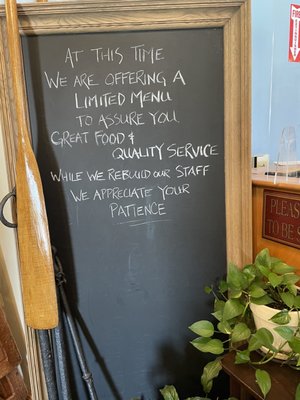 AT THIS TIME
WE ARE OFFERING A
LIMITED MENU
TO ASSURE YOU
GREAT FOOD &
QUALITY SERVICE
WHILE WE REBUILD OUR STAFF
WE APPRECIATE YOUR
PATIENCE
FIRE
PLEAS
TO BE S